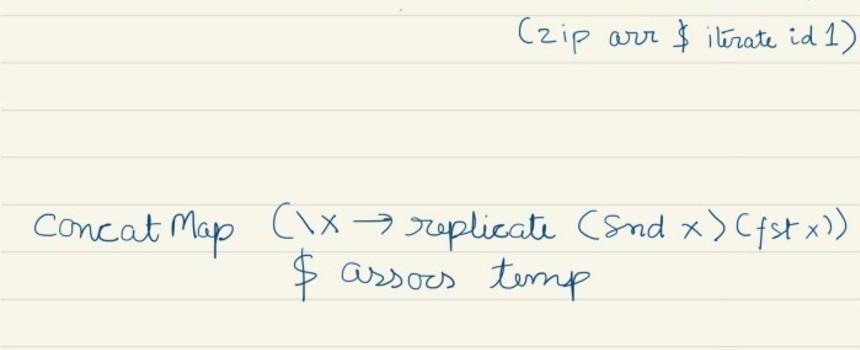 (zip arr $ iterate id 1)
concatMap (\x → replicate (snd x) (fst x))
$ assocs temp